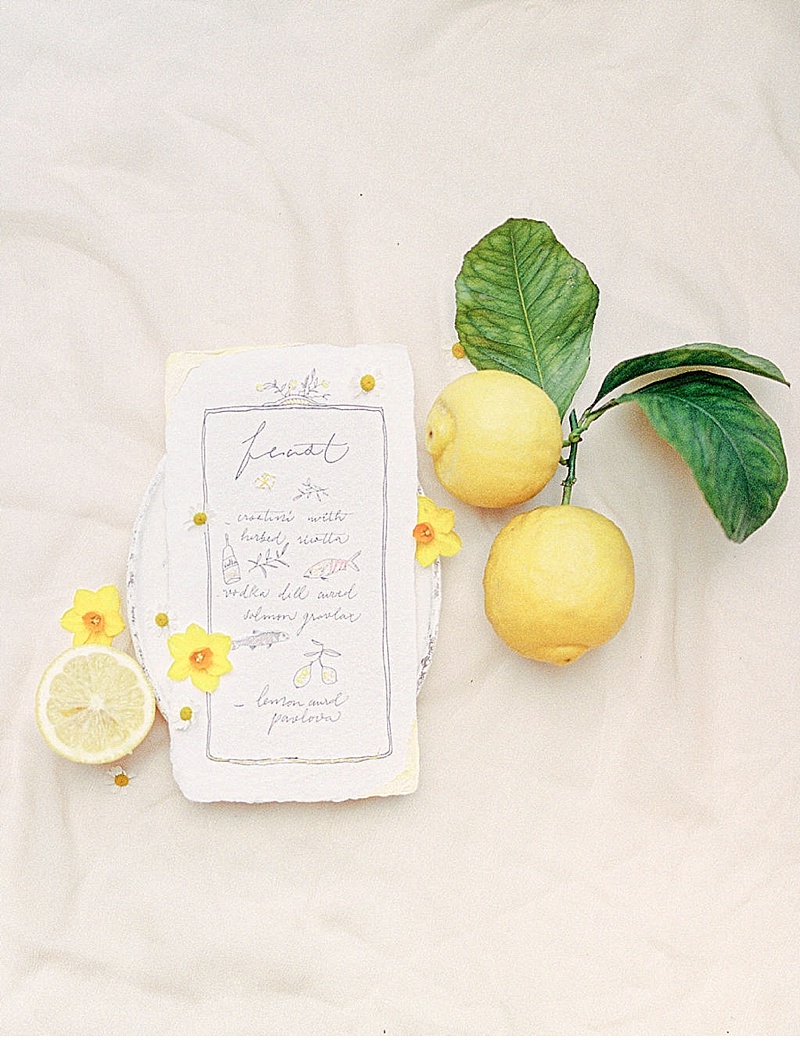 feast
- crostini with
herbed ricotta
vodka
vodka dill cured
salmon gravlax
- lemon curd
pavlova